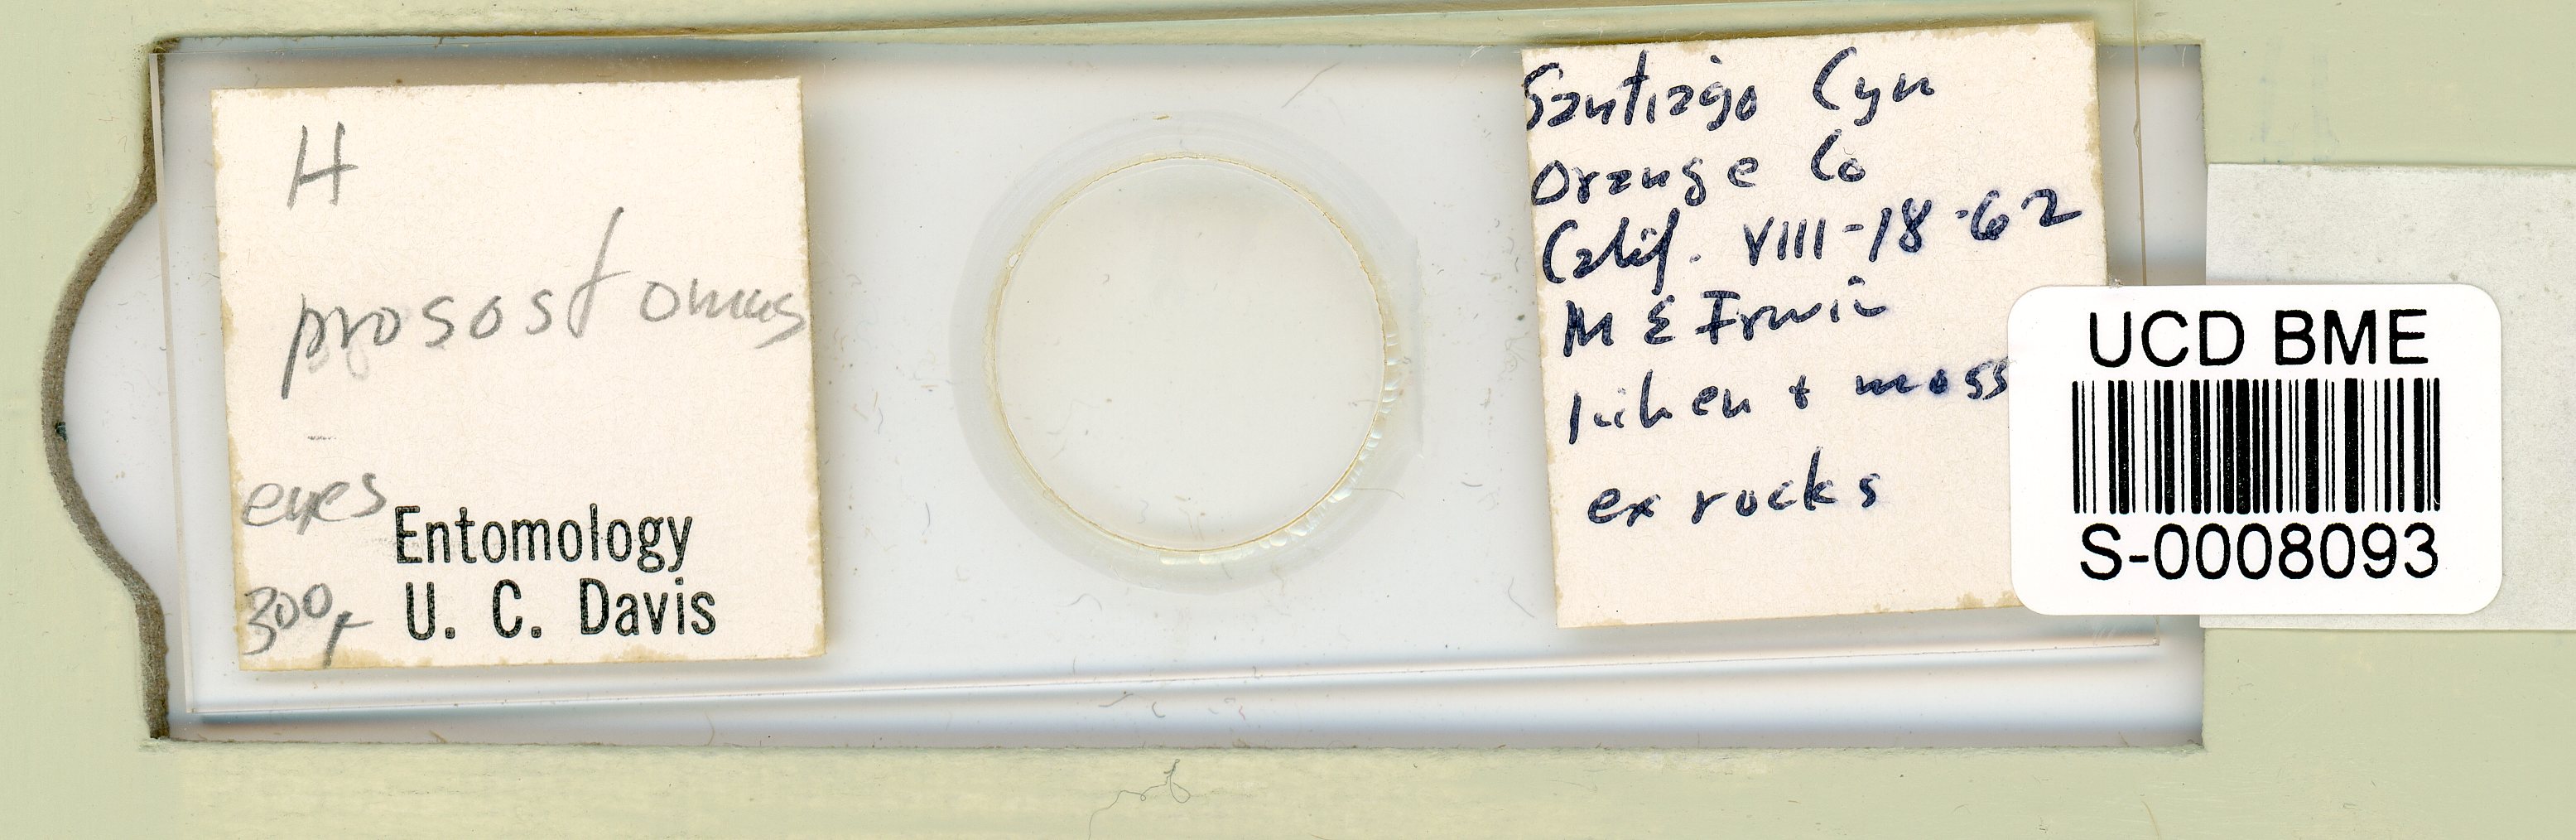 H
prosostomus
eyes
300µ
Entomology
U. C. Davis
Santiago Cyn
Orange Co
Calif. VIII-18-62
M E Irwin
lichen + moss
ex rocks
UCD BME
S-0008093